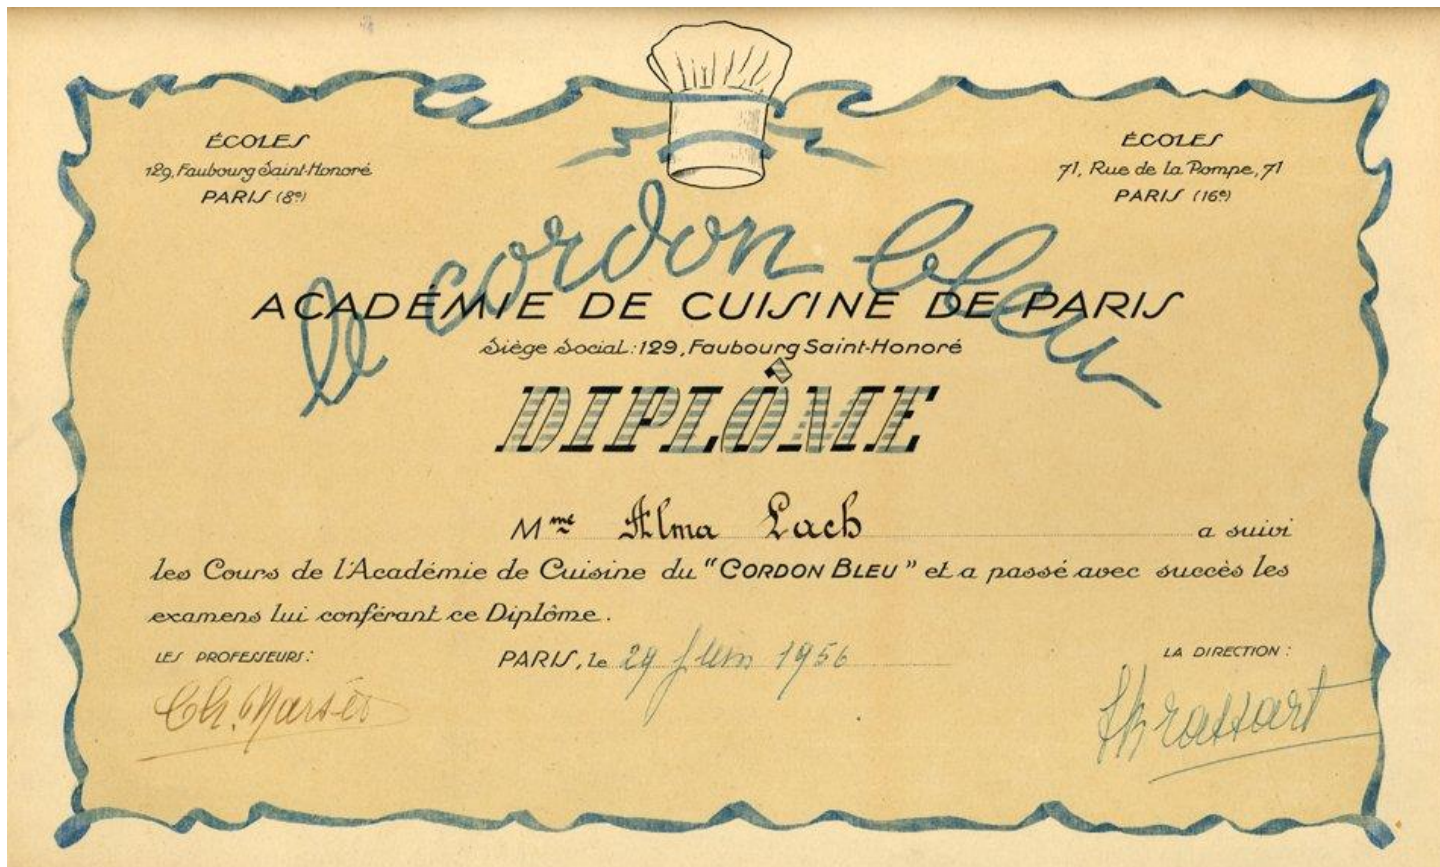 ÉCOLES
129, Faubourg Saint-Honoré
PARIS (8e)
ÉCOLES
71, Rue de la Pompe, 71
PARIS (16e)
le cordon bleu
ACADÉMIE DE CUISINE DE PARIS
Siège Social: 129, Faubourg Saint-Honoré
DIPLÔME
Mme Alma Lach a suivi
les Cours de l'Académie de Cuisine du "CORDON BLEU" et a passé avec succès les
examens lui conférant ce Diplôme.
LES PROFESSEURS:
PARIS, le 29 Juin 1956
LA DIRECTION:
Ch.